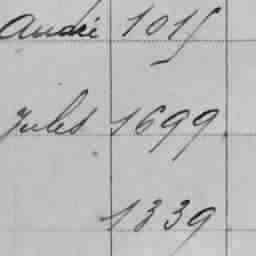 André 1015
Jules 1699
1339